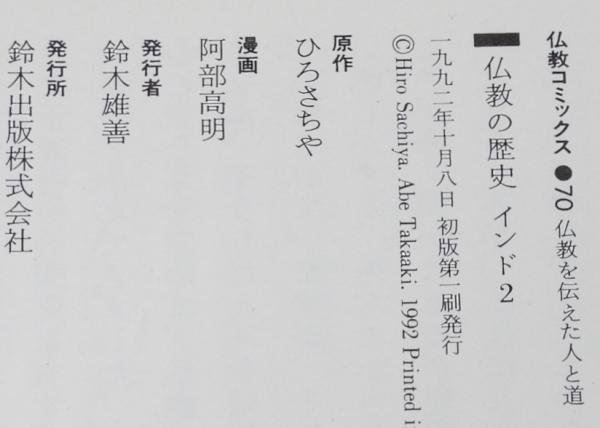 仏教コミックス●70 仏教を伝えた人と道
仏教の歴史 インド2
一九九二年十月八日 初版第一刷発行
©Hiro Sachiya. Abe Takaaki. 1992 Printed i
原作
ひろさちや
漫画
阿部高明
発行者
鈴木雄善
発行所
鈴木出版株式会社